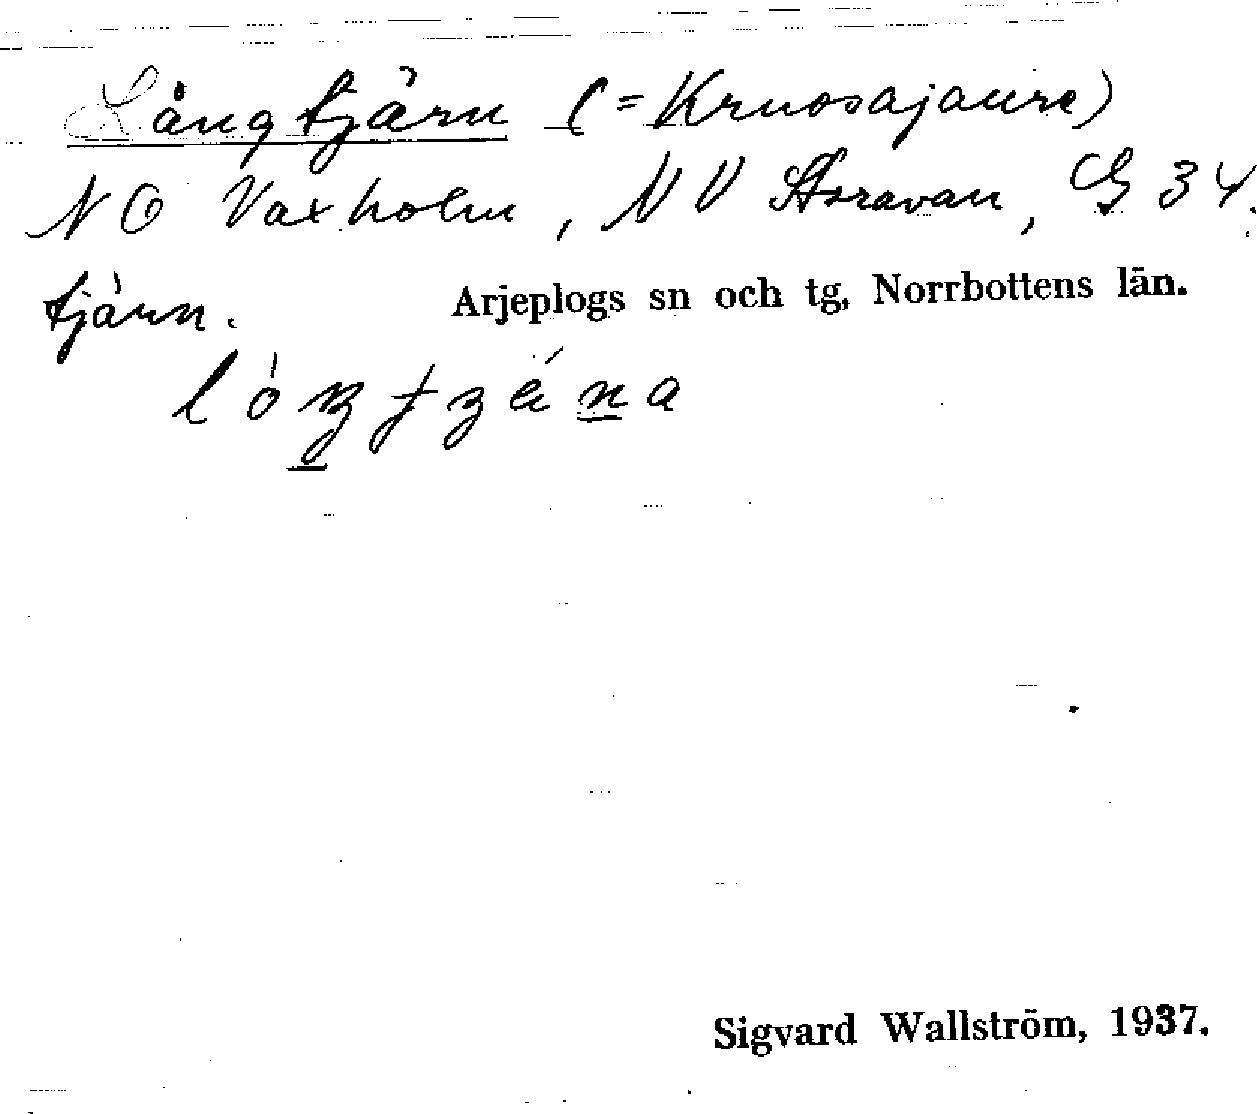 Långtjärn (=Kruosajaure)
NO Vaxholm, NV Storavan, G 34.
tjärn. Arjeplogs sn och tg, Norrbottens län.
Sigvard Wallström, 1937.